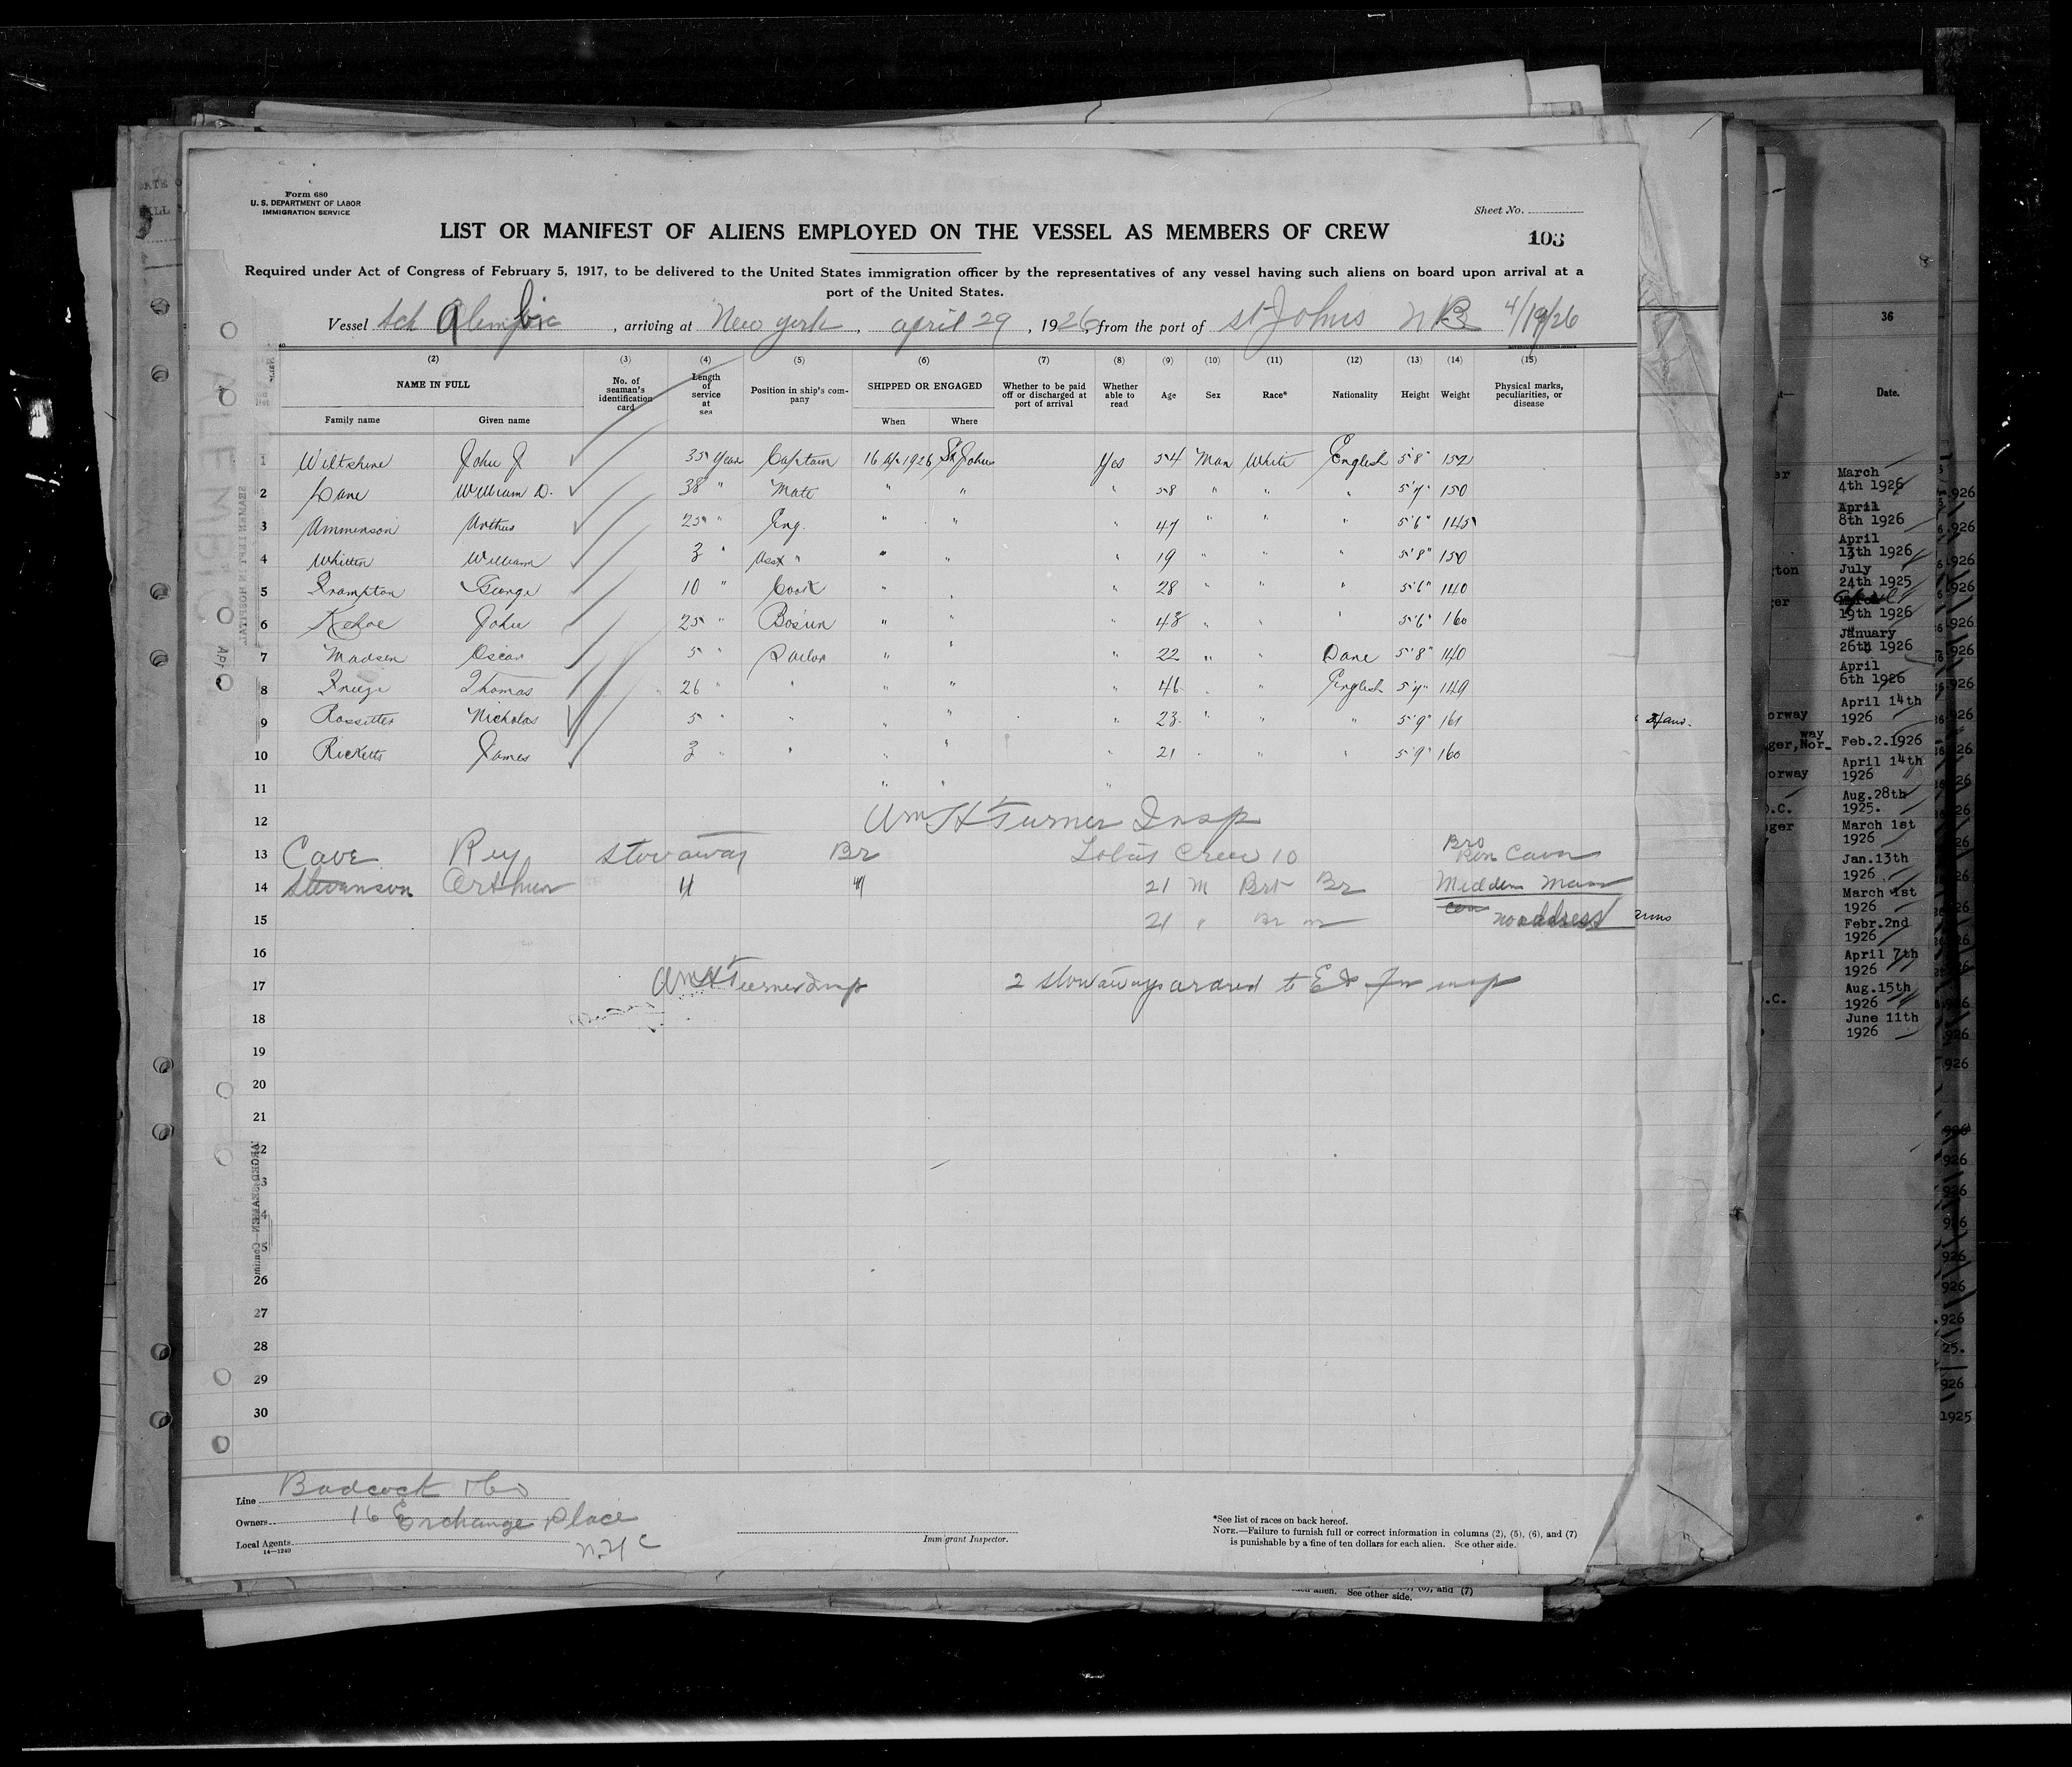 Form 680
U. S. DEPARTMENT OF LABOR
IMMIGRATION SERVICE
Sheet No.
LIST OR MANIFEST OF ALIENS EMPLOYED ON THE VESSEL AS MEMBERS OF CREW
103
Required under Act of Congress of February 5, 1917, to be delivered to the United States immigration officer by the representatives of any vessel having such aliens on board upon arrival at a
port of the United States.
Vessel Sch Alembic, arriving at New york, april 29, 1926, from the port of St Johns N B 4/19/26
(2) (3) (4) (5) (6) (7) (8) (9) (10) (11) (12) (13) (14) (15)
NAME IN FULL
Family name Given name
No. of seaman's identification card
Length of service at sea
Position in ship's company
SHIPPED OR ENGAGED
When Where
Whether to be paid off or discharged at port of arrival
Whether able to read
Age Sex Race* Nationality Height Weight
Physical marks, peculiarities, or disease
1 Wiltshire John J 35 Years Captain 16 1926 St Johns Yes 54 Man White English 5'8" 152
2 Lane William D. 38 " Mate " " " 58 " " " 5'7" 150
3 Ammenson Arthur 25 " Eng. " " " 47 " " " 5'6" 145
4 Whitten William 3 " Asst " " " " 19 " " " 5'8" 150
5 Frampton George 10 " Cook " " " 28 " " " 5'6" 140
6 Kehoe John 25 " Bosun " " " 48 " " " 5'6" 160
7 Madsen Oscar 5 " Sailor " " " 22 " " Dane 5'8" 140
8 Freeze Thomas 26 " " " " " 46 " " English 5'7" 149
9 Rossitter Nicholas 5 " " " " " 23 " " " 5'9" 161
10 Ricketts James 3 " " " " " 21 " " " 5'9" 160
11 " " "
12 Wm H Turner Insp
13 Cave Rey Stowaway Br Crew 10 Bro
14 Stevenson Arthur " " 21 M Brt Br
15 21 " Br no address
16
17 Wm H Turner Insp 2 stowaways ordered to EI for insp
18
19
20
21
22
23
24
25
26
27
28
29
30
Line Badcock & Co
Owners 16 Exchange Place
Local Agents N.Y C
14—1240
Immigrant Inspector.
*See list of races on back hereof.
NOTE.—Failure to furnish full or correct information in columns (2), (5), (6), and (7)
is punishable by a fine of ten dollars for each alien. See other side.
See other side. and (7)
36
Date.
March
4th 1926
April
8th 1926
April
13th 1926
July
24th 1925
19th 1926
January
26th 1926
April
6th 1926
April 14th
1926
Feb.2.1926
April 14th
1926
Aug.28th
1925.
March 1st
1926
Jan.13th
1926
March 1st
1926
Febr.2nd
1926
April 7th
1926
Aug.15th
1926
June 11th
1926